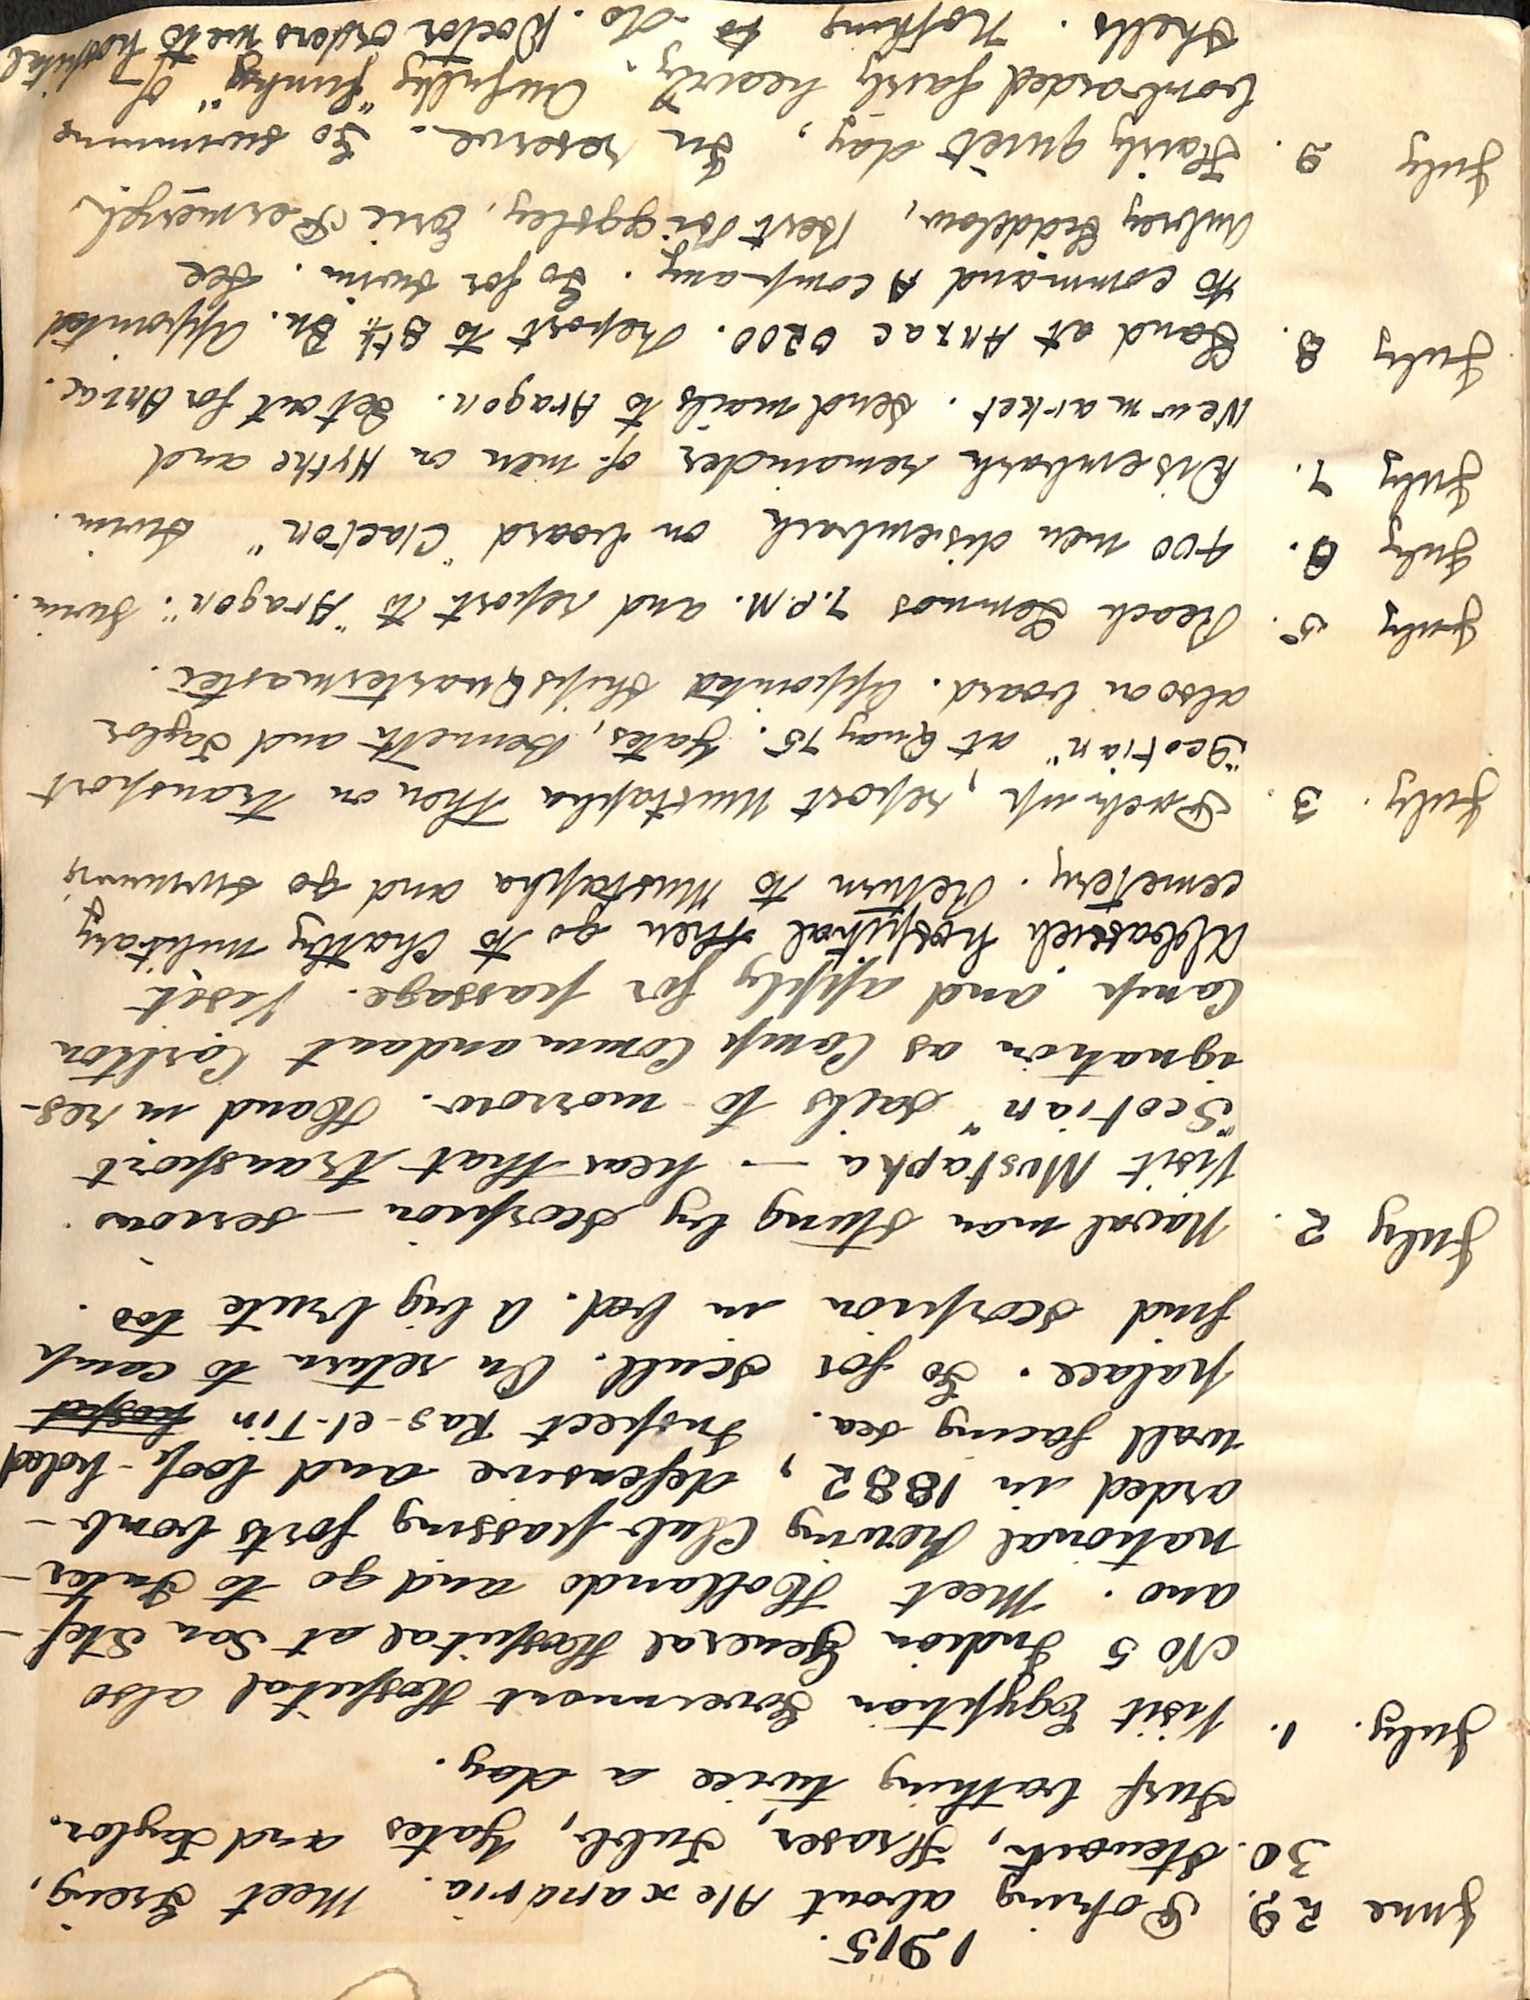 1915.
June 29. Poking about Alexandria. Meet Greig,
30. Stewart, Fraser, Tubb, Yates and Taylor.
Surf bathing twice a day.
July. 1. Visit Egyptian Goverment Hospital also
No 5 Indian General Hospital at San Stef-
ano. Meet Hollands and go to Inter-
national Rowing Club passing forts bomb-
arded in 1882, defensive and loop-holed
wall facing sea. Inspect Ras-el-Tin hospit
palace. Go for scull. On return to camp
find scorpion in bed. A big brute too.
July 2. Naval man stung by scorpion — serious.
Visit Mustapha — hear that transport
"Scotian" sails to-morrow. Hand in res-
ignation as Camp Commandant Carlton
Camp and apply for passage. Visit
Abbassieh hospital then go to Chatby military
cemetery. Return to Mustapha and go swimming.
July. 3. Pack up, report Mustapha then on transport
"Scotian" at Quay 75. Yates, Bennett and Taylor
also on board. Appointed Ships Quartermaster.
July 5. Reach Lemnos 7.P.M. and report to "Aragon". Swim.
July 6. 400 men disembark on board "Clacton" Swim.
July 7. Disembark remainder of men on Hythe and
Newmarket. Send mails to Aragon. Set out for Anzac.
July 8. Land at Anzac 0200. Report to 8th Bn. Appointed
to command A Company. Go for swim. See
Aubrey Liddelow, Bert Briggsley, Eric Permezel
July 9. Fairly quiet day, In reserve. Go swimming
bombarded fairly heavily. Awfully "funky" of
shells. Nothing to do. Doctor orders me to hospital